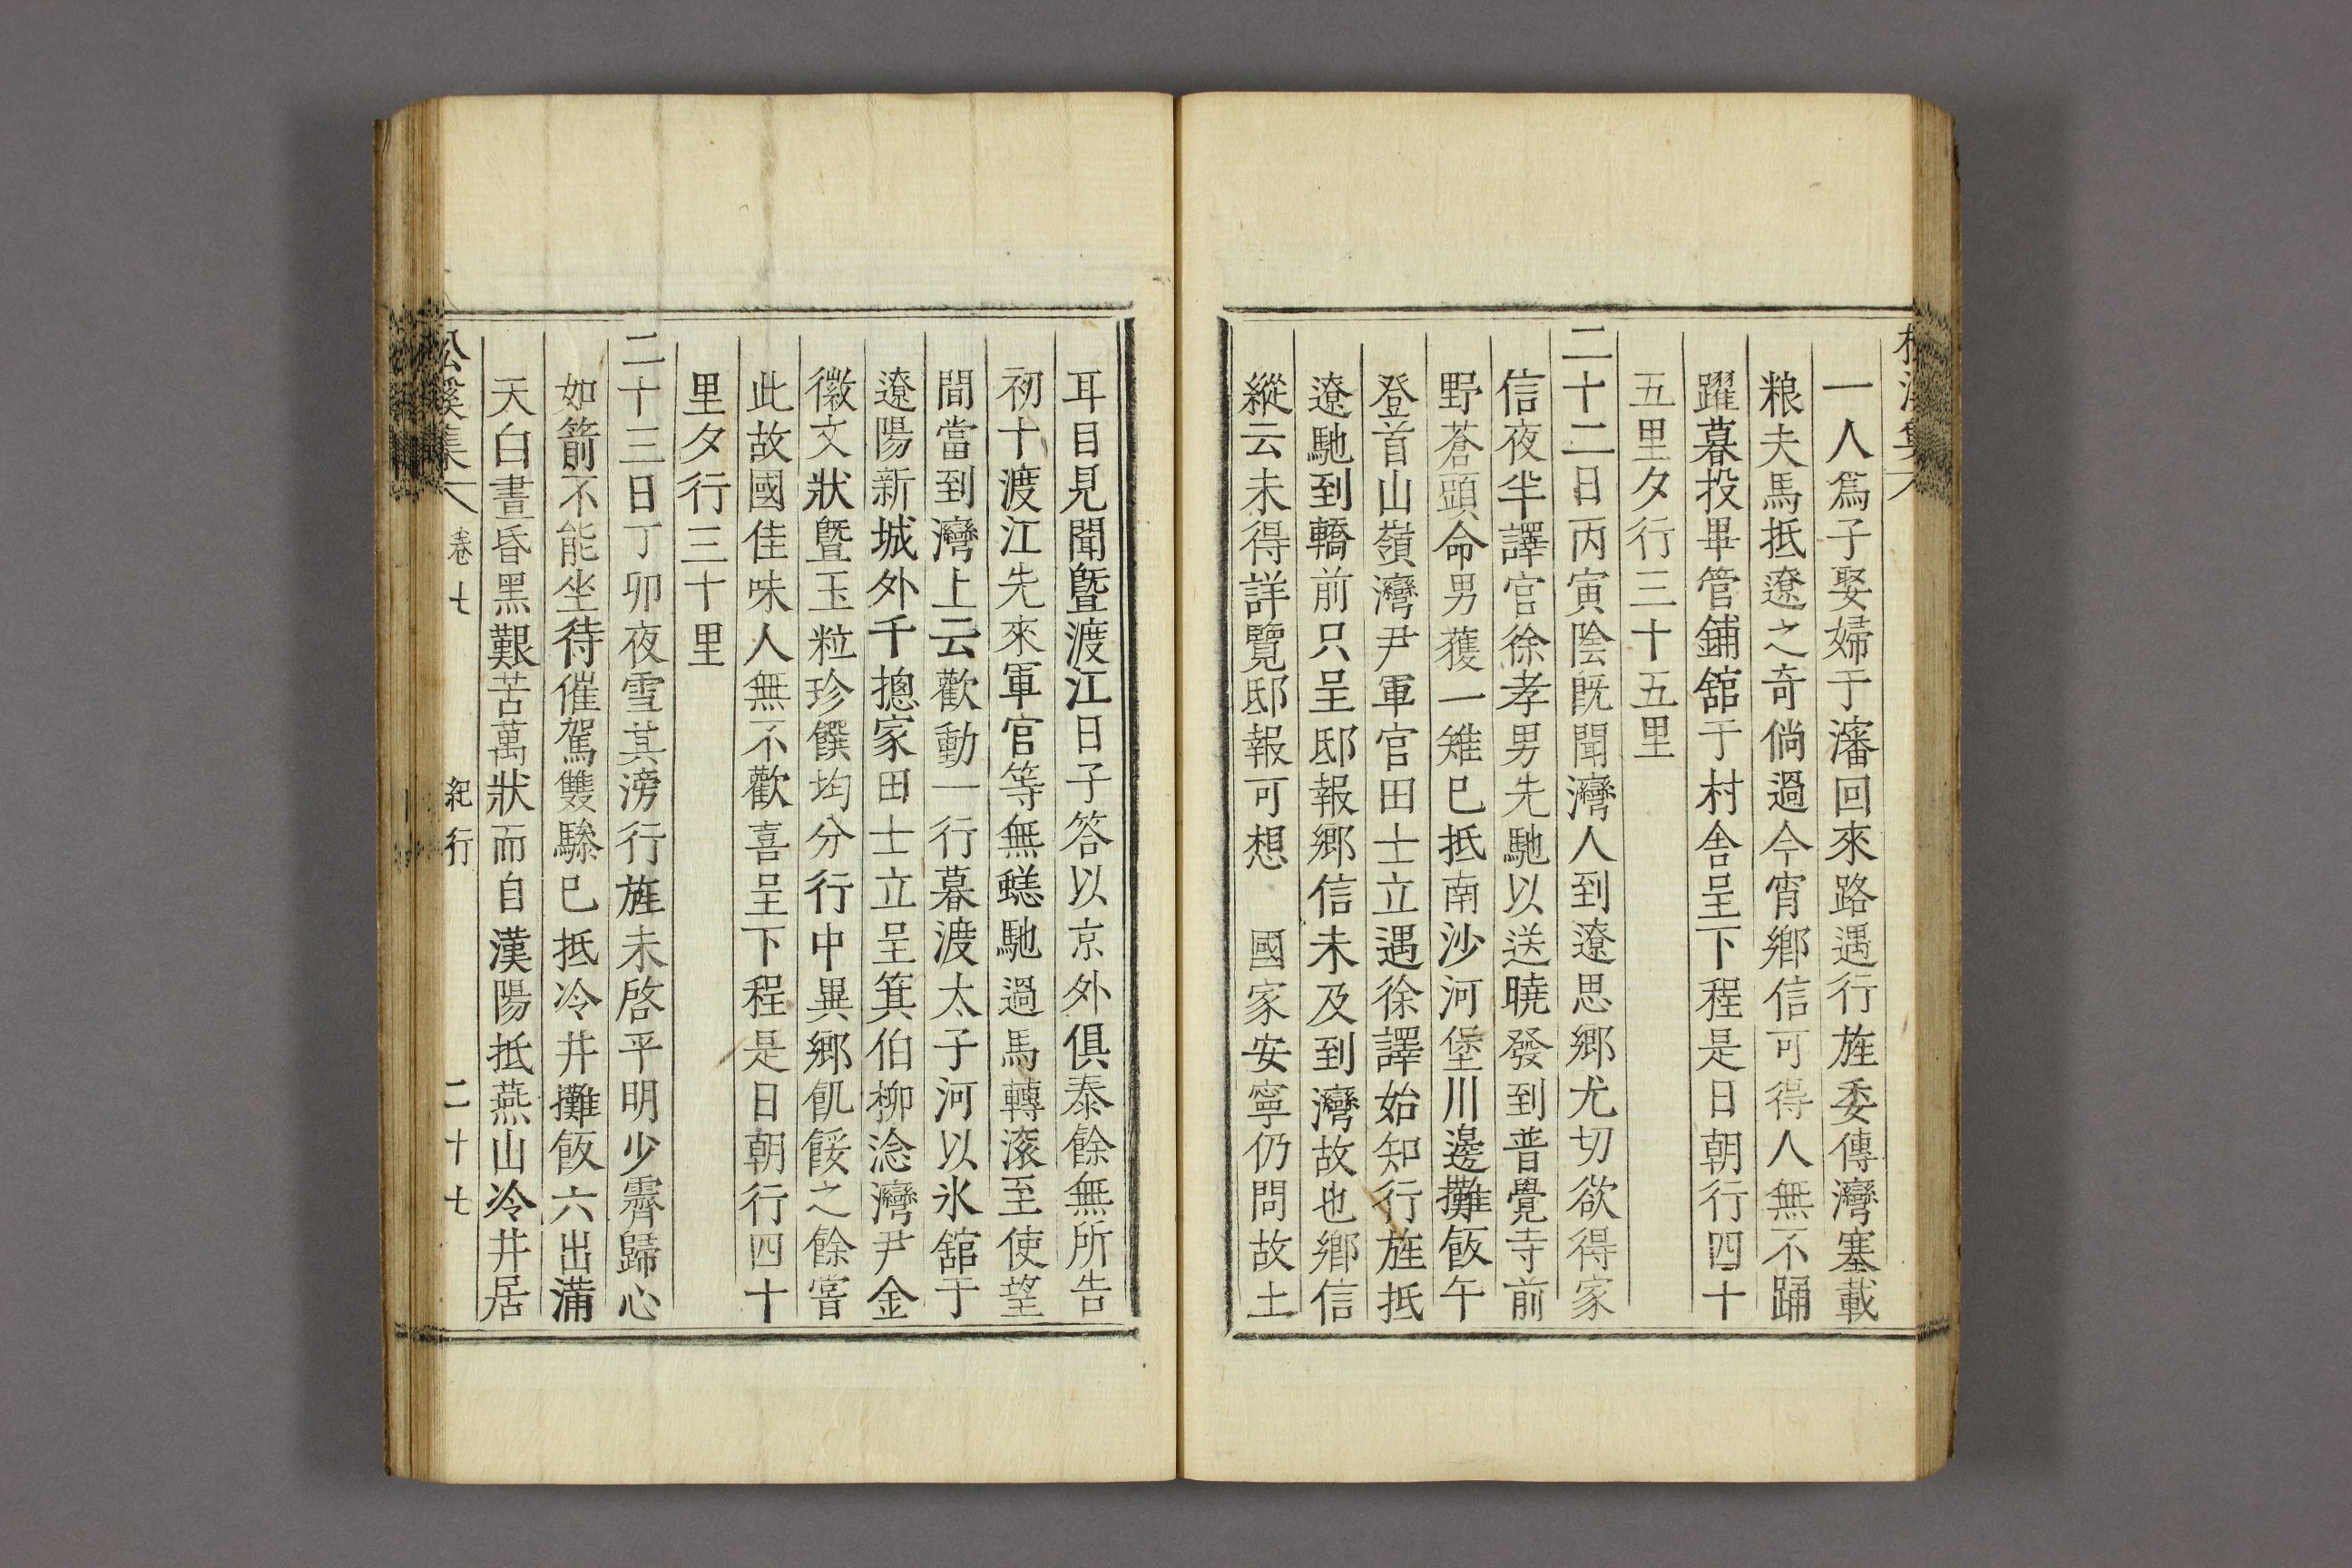 一人爲子娶婦于瀋回來路遇行旌委傳灣塞載
粮夫馬抵遼之奇倘過今宵鄕信可得人無不踊
躍暮投畢管鋪舘于村舍呈下程是日朝行四十
五里夕行三十五里
二十二日丙寅陰旣聞灣人到遼思鄕尤切欲得家
信夜半譯官徐孝男先馳以送曉發到普覺寺前
野蒼頭命男獲一雉已抵南沙河堡川邊攤飯午
登首山嶺灣尹軍官田士立遇徐譯始知行旌抵
遼馳到轎前只呈邸報鄕信未及到灣故也鄕信
縱云未得詳覽邸報可想 國家安寧仍問故土
耳目見聞曁渡江日子答以京外俱泰餘無所告
初十渡江先來軍官等無魕馳過馬轉滚至使望
間當到灣上云歡動一行暮渡太子河以氷舘于
遼陽新城外千摠家田士立呈箕伯柳淰灣尹金
徽文狀曁玉粒珍饌均分行中異鄕飢餒之餘嘗
此故國佳味人無不歡喜呈下程是日朝行四十
里夕行三十里
二十三日丁卯夜雪其滂行旌未啓平明少霽歸心
如箭不能坐待催駕雙驂已抵冷井攤飯六出滿
天白晝昏黑艱苦萬狀而自漢陽抵燕山冷井居
松溪集 卷七 紀行 二十七